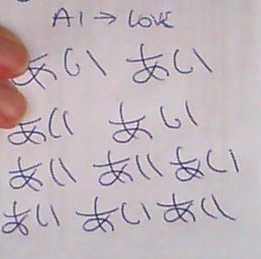 AI → LOVE
あい あい
あい あい
あい あい あい
あい あい あい